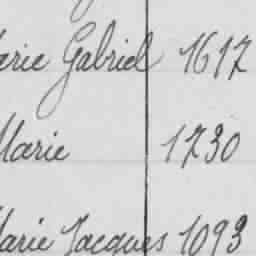 arie Gabriel 1617
Marie 1730
Marie Jacques 1093